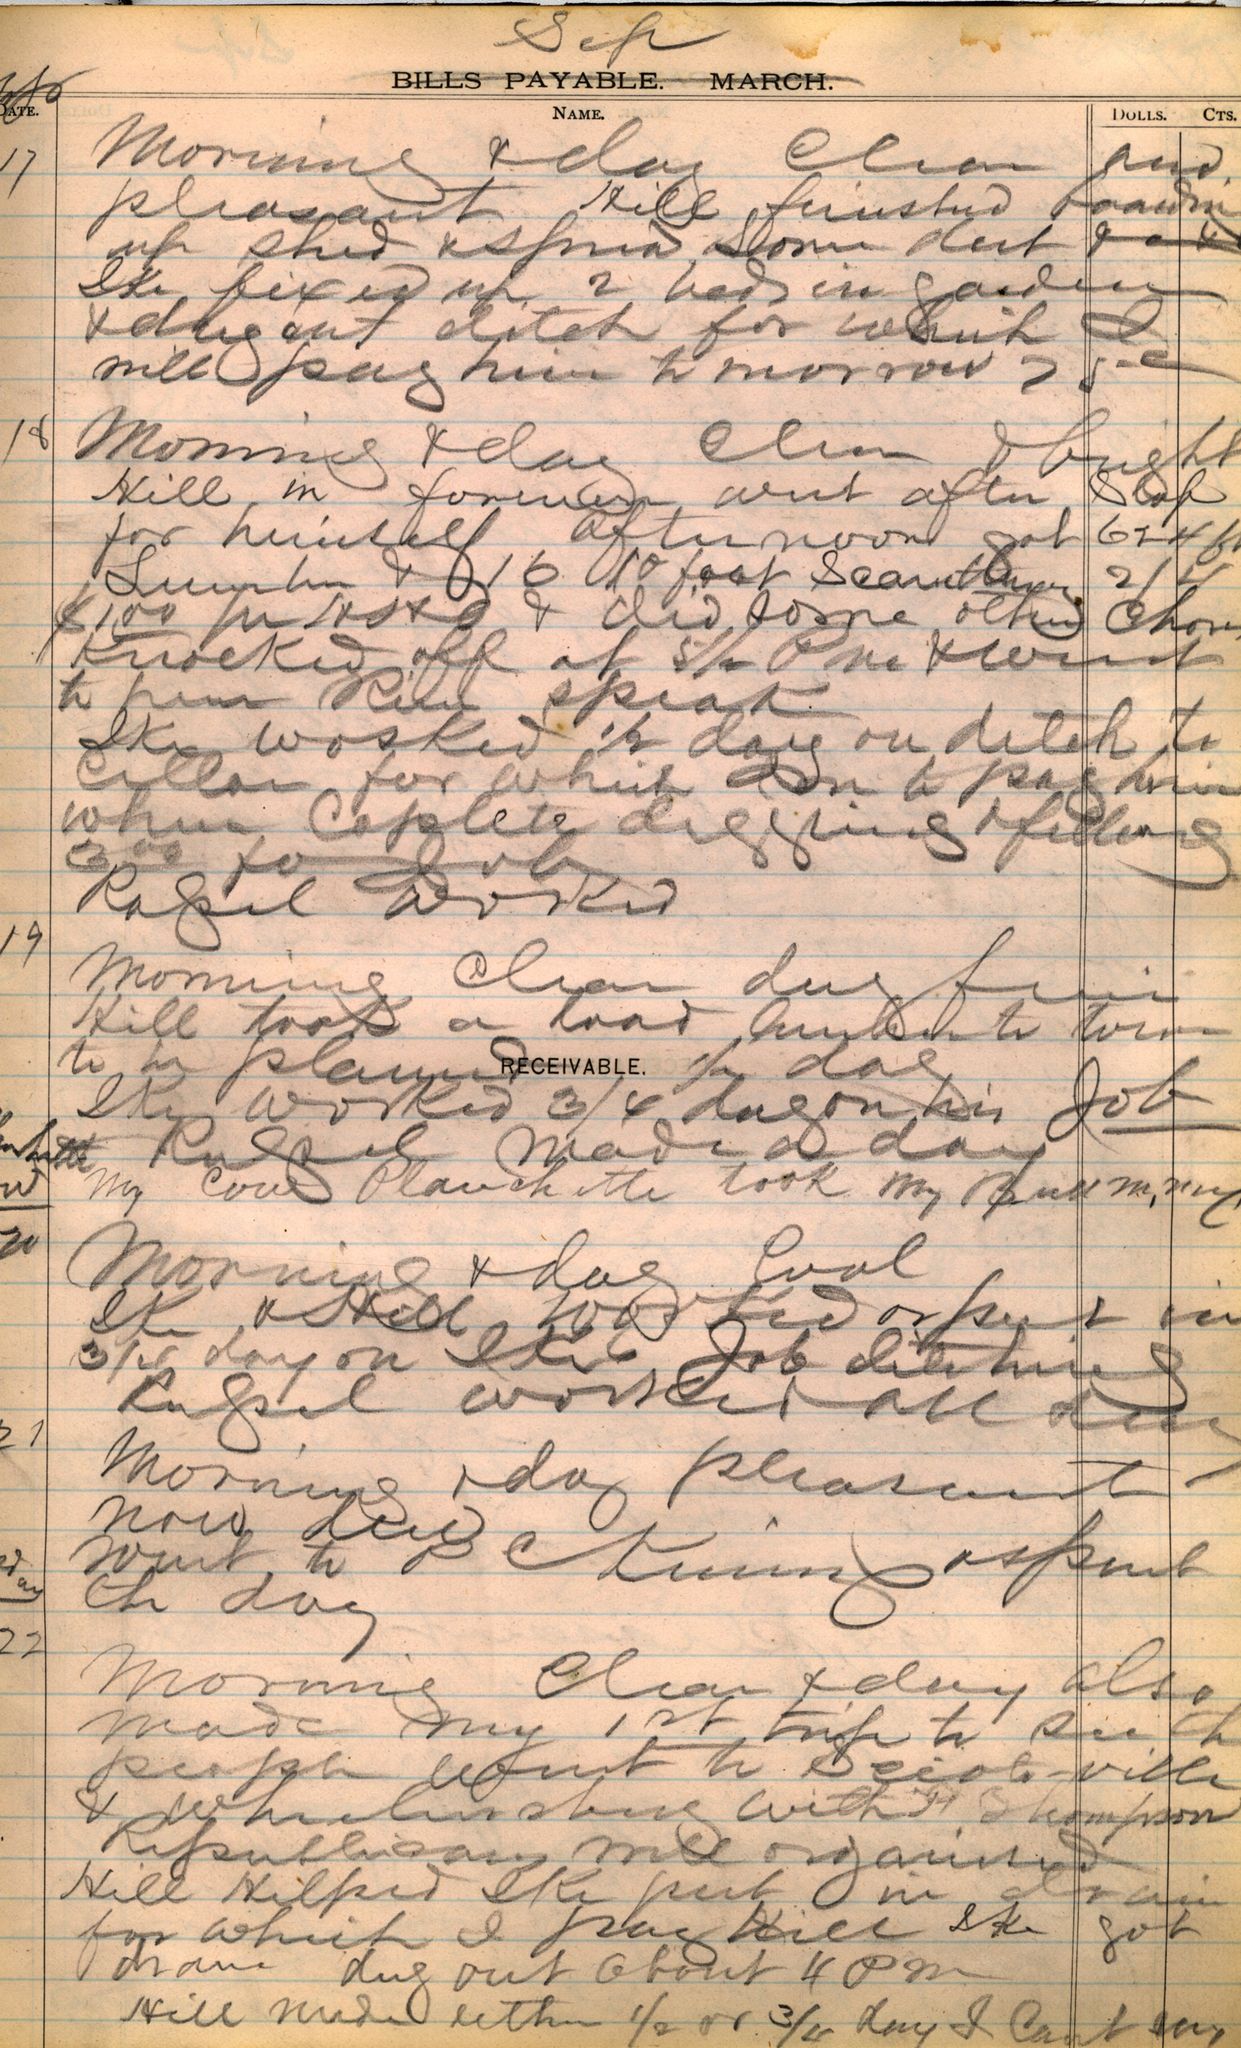 Sep
BILLS PAYABLE. MARCH.
DATE. NAME. DOLLS. CTS.
17 Morning & day Clear and
pleasant Hill finished boarding
up shed & spread some dirt
Ike fixed up 2 beds in garden
& dug out ditch for which I
will pay him to morrow 75c
18 Morning & day Clear & bright
Hill in forenoon went after Slop
for himself afternoon got 624 ft
Lumber & 16 10 foot Scantling 2/4
& did some other Chores
Knocked off at 5 1/2 P m & went
to hear speak
Ike worked 1/2 day on ditch to
Cellar for which am to pay him
when Coplete digging & filling
3 00 for Job
Ralph worked
19 Morning Clear day fair
Hill took a load lumber to town
to be planed 1/2 day
RECEIVABLE.
Ike worked 3/4 day on his Job
made a day
My Cow Planchette took my Bull
20 Morning & day Cool
Ike & Hill worked or put in
3/4 day on Ike Job ditching
worked all day
21 Morning & day pleasant
now dry
went to P C King & spent
the day
22 Morning Clear & day also
made my 1st trip to see the
people went to Scioto-ville
& Wheelersburg with Thompson
Republicans well organised
Hill Helped Ike put in drain
for which I pay Hill Ike got
drane dug out about 4 P m
Hill made either 1/2 or 3/4 day I Cant say